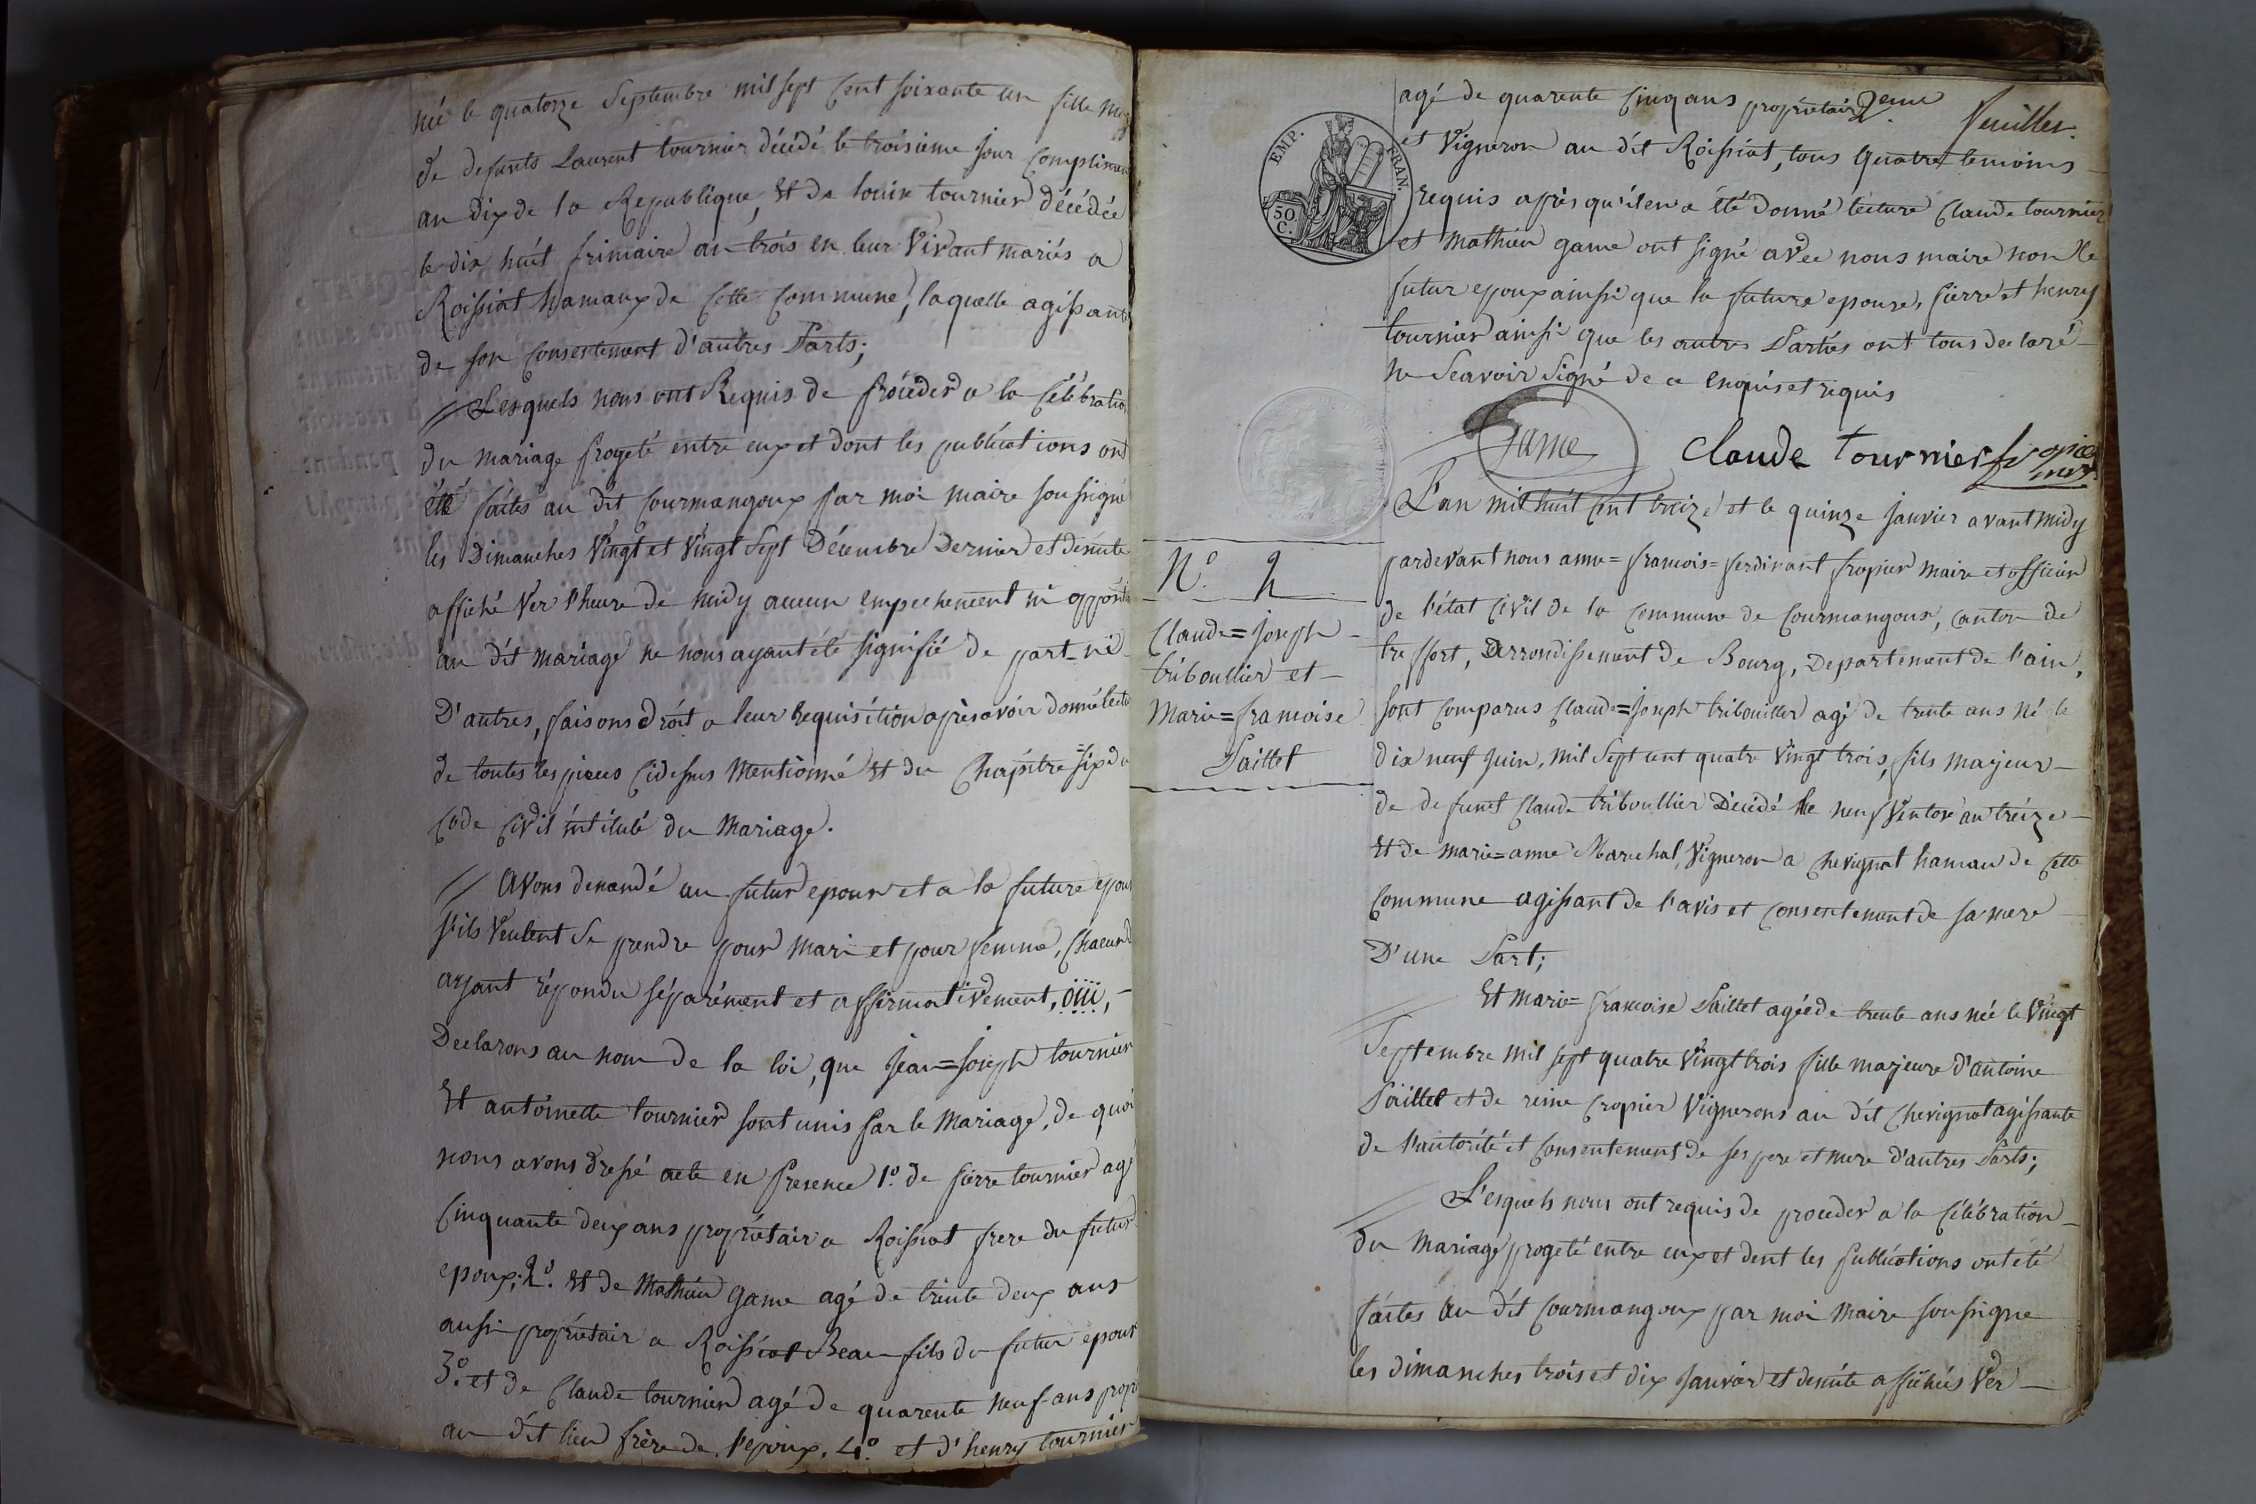 né le quatorze Septembre mil sept Cent soixante un fille maj
de defunts Laurent tournier décédé le troisieme jour Complimen
an dix de la Republique, Et de louise tournier décédée
le dix huit frimaire an trois en leur Vivant mariés a
Roissiat hamaux de Cette Commune, laquelle agissante
de son Consentement d'autres Parts;
Lesquels nous ont Requis de procéder a la Célébration
du mariage progeté entre eux et dont les publications ont
été faites au dit Courmangoux par moi maire soussigné
les Dimanches Vingt et Vingt Sept Décembre Dernier et densuite
affiché Ver l'heure de midy aucun empechement ni opposit
au dit mariage ne nous ayant été signifié de part ni
D'autres, faisons droit a leur Requisition après avoir donné lectu
de toutes les pieces Cidessus mentionné et du Chapitre =six du
Code Civil intitulé du Mariage.
Avons demandé au futur epoux et a la future epou
s'ils Veulent se prendre pour mari et pour femme, Chacun d
ayant répondu séparément et affirmativement, oüi,
Declarons au nom de la loi, que Jean=Joseph tournier
Et antoinette tournier sont unis par le Mariage, de quoi
nous avons dressé acte en presence 1º. de pierre tournier agé
Cinquante deux ans propriétair a Roissiat frere du futur
epoux; 2º. Et de Mathieu Game agé de trente deux ans
aussi propriétair a Roissiat Beau fils du futur epoux
3º. et de Claude tournier agé de quarente neuf ans propr
au dit lieu frère de l'epoux. 4º. et d'henry tournier
agé de quarente Cinq ans propriétair
2eme feuillet.
et Vigneron au dit Roissiat, tous quatre temoins
requis après qu'il en a été donné lecture Claude tournier
et mathieu game ont signé avec nous maire non le
futur epoux ainsi que la future epouse, pierre et henry
tournier ainsi que les autres Parties ont tous declaré
ne Scavoir Signé de ce enquis et requis
Game Claude tournier fropier
mer
L'an mil huit Cent treize et le quinze Janvier avant midy
pardevant nous anne=francois=ferdinant fropier maire et officier
de l'état Civil de la Commune de Courmangoux, Canton de
treffort, Darrondissement de Bourg, Departement de l'ain,
Nº. 2
Claude=Joseph
triboullier et
Marie=francoise
Paillet
sont Comparus Claude=Joseph tribouiller agé de trente ans né le
dix neuf Juin, mil Sept cent quatre Vingt trois, fils majeur
de defunct Claude triboullier Décédé le neuf Ventose an treize
Et de marie=anne Marechal, Vigneron a Chevignat hamau de Cette
Commune agissant de l'avis et Consentement de sa mere
D'une Part;
Et marie=francoise Paillet agée de trente ans née le Vingt
Septembre mil sept quatre Vingt trois fille majeure d'antoine
Paillet et de reine Cropier Vignerons au dit Chevignat agissante
de l'autorité et Consentement de ses pere et mere d'autres Parts;
L'esquels nous ont requis de proceder a la Célébration
du Mariage progeté entre eux et dont les publications ont été
faites au dit Courmangoux par moi maire soussigne
les dimanches trois et dix Janvier et densuite affichés Ver
EMP. FRAN.
50
C.